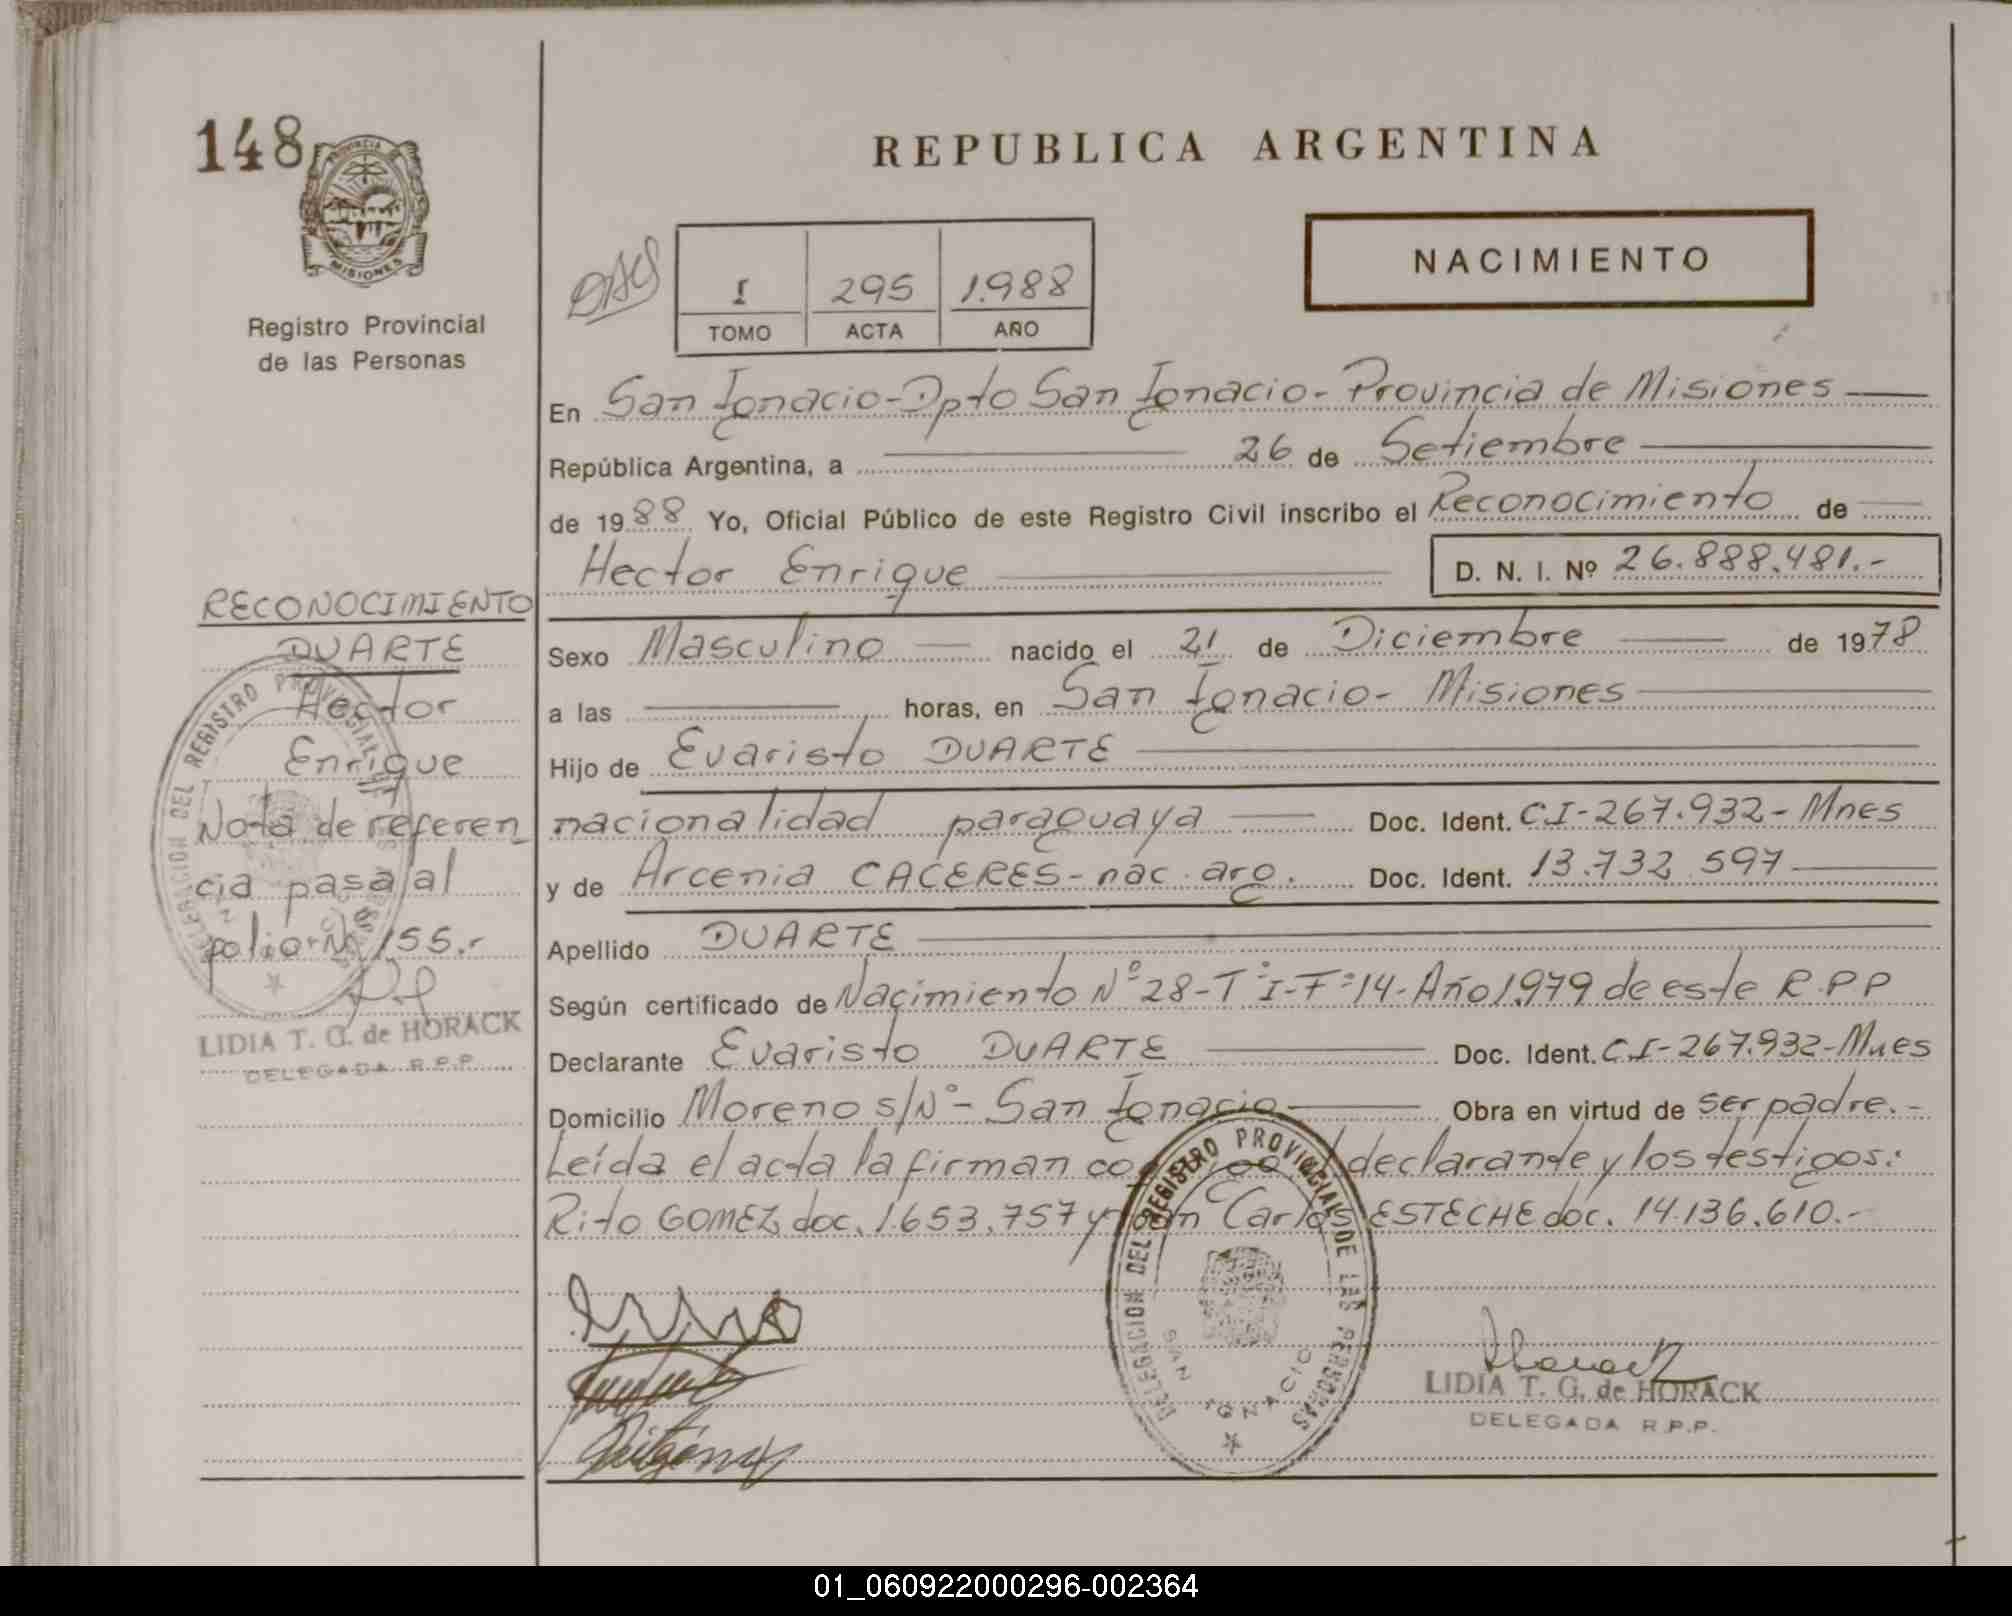 148
PROVINCIA DE
MISIONES
Registro Provincial
de las Personas
REPUBLICA ARGENTINA
NACIMIENTO
I 295 1.988
TOMO ACTA AÑO
En San Ignacio-Dpto San Ignacio- Provincia de Misiones
República Argentina, a 26 de Setiembre
de 1988 Yo, Oficial Público de este Registro Civil inscribo el Reconocimiento de
Hector Enrique D. N. I. Nº 26.888.481.-
Sexo Masculino nacido el 21 de Diciembre de 1978
a las horas, en San Ignacio- Misiones
Hijo de Evaristo DUARTE
nacionalidad paraguaya Doc. Ident. CI-267.932-Mnes
y de Arcenia CACERES-nac. arg. Doc. Ident. 13.732.597
Apellido DUARTE
Según certificado de Nacimiento Nº28-TºI-Fº14-Año1979 de este R.P.P
Declarante Evaristo DUARTE Doc. Ident. C.I-267.932-Mnes
Domicilio Moreno s/Nº- San Ignacio Obra en virtud de ser padre.-
Leída el acta la firman declarante y los testigos:
Rito GOMEZ doc. 1.653.757 y Carlos ESTECHE doc. 14.136.610.-
RECONOCIMIENTO
DUARTE
Hector
Enrique
Nota de referen
cia pasa al
folio Nº 155.-
LIDIA T. G. de HORACK
DELEGADA R.P.P.
DELEGACION DEL REGISTRO PROVINCIAL DE LAS PERSONAS
DELEGACION DEL REGISTRO PROVINCIAL DE LAS PERSONAS
SAN IGNACIO
LIDIA T. G. de HORACK
DELEGADA R.P.P.
01_060922000296-002364